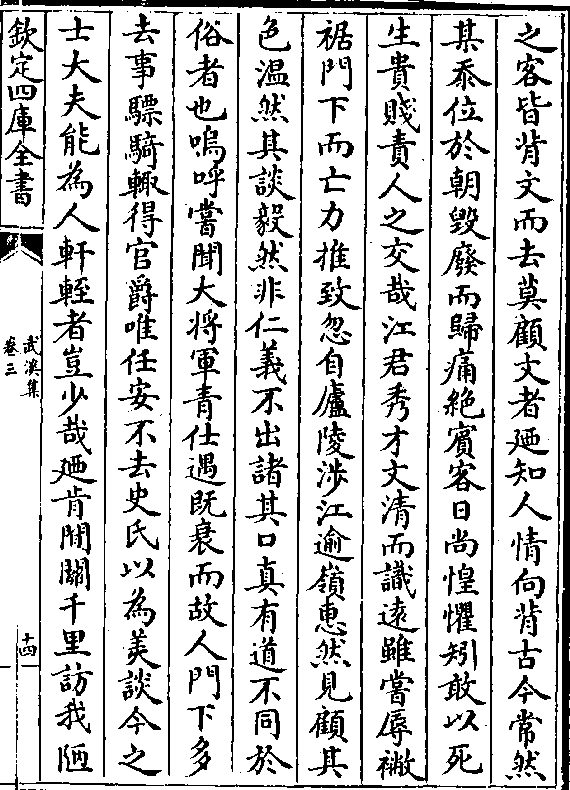 之客皆背文而去莫顧丈者廼知人情向背古今常然
某忝位於朝毀廢而歸痛絶賓客日尚惶懼矧敢以死
生貴賤責人之交哉江君秀才文清而識遠雖嘗辱襒
裾門下而亡力推致忽自廬陵涉江逾嶺惠然見顧其
色温然其談毅然非仁義不出諸其口真有道不同於
俗者也嗚呼嘗聞大將軍青仕遇既衰而故人門下多
去事驃騎輙得官爵唯任安不去史氏以為美談今之
士大夫能為人軒輊者豈少哉廼肯間關千里訪我陋
欽定四庫全書
武溪集
卷三
十四